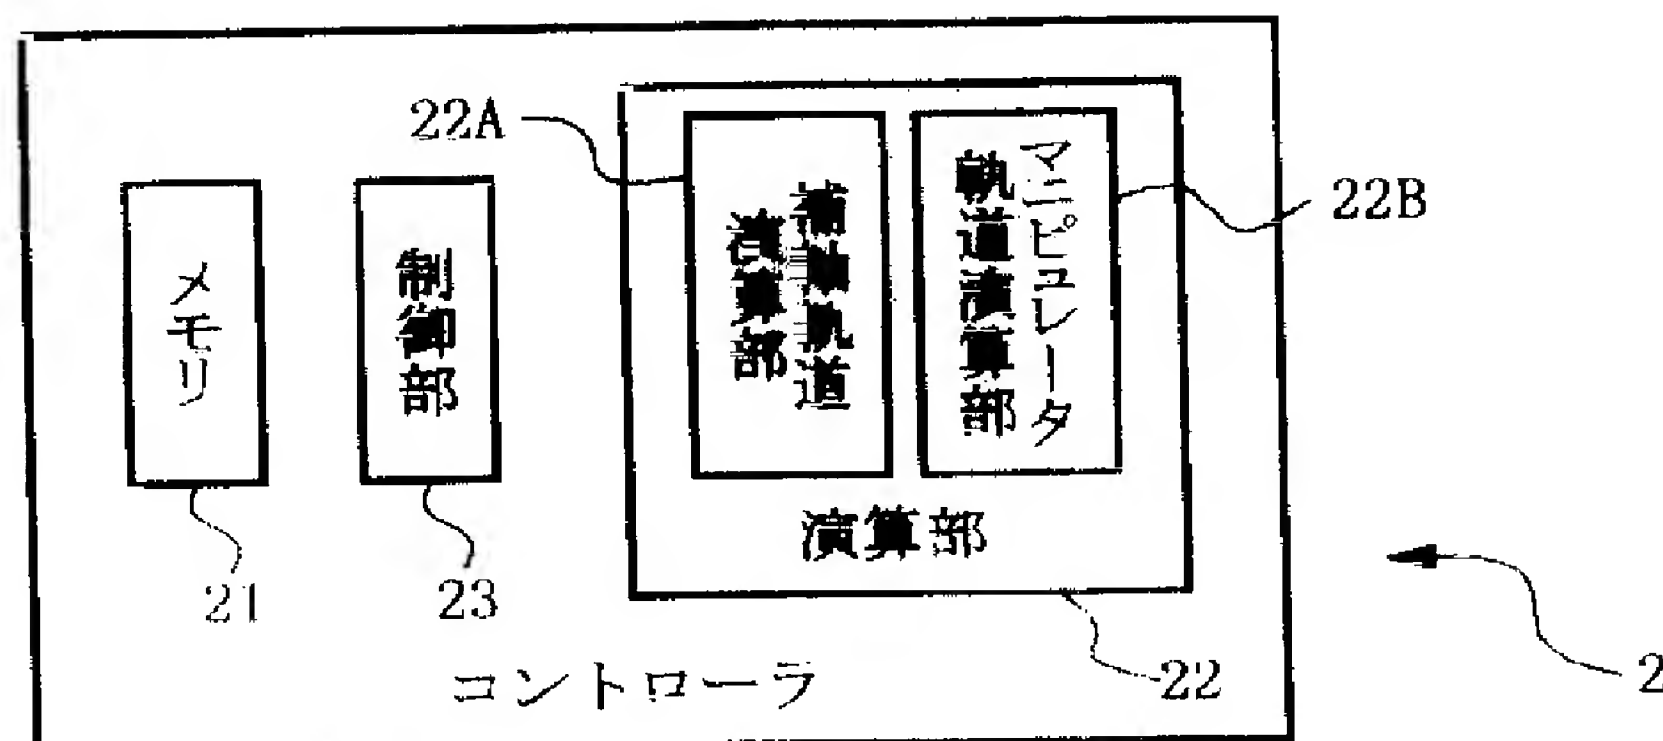 22A
22B
メモリ
制御部
軌道
演算部
マニピュレータ
軌道演算部
演算部
21
23
コントローラ
22
2